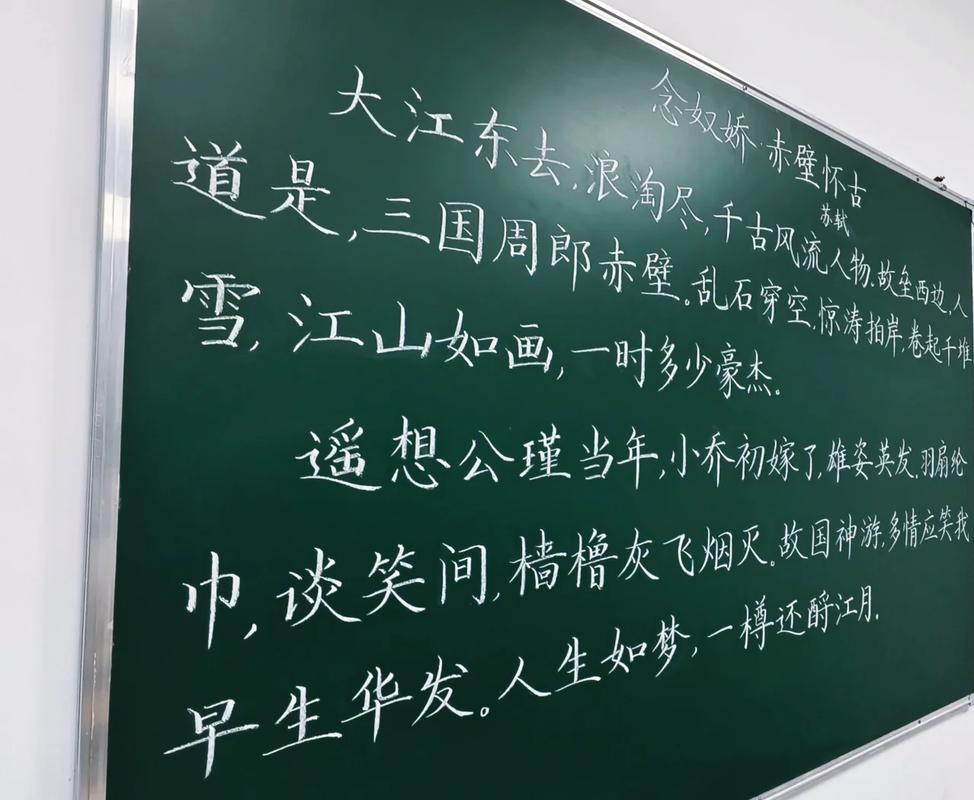 念奴娇·赤壁怀古
苏轼
大江东去,浪淘尽,千古风流人物.故垒西边,人
道是,三国周郎赤壁。乱石穿空,惊涛拍岸,卷起千堆
雪,江山如画,一时多少豪杰。
遥想公瑾当年,小乔初嫁了,雄姿英发.羽扇纶
巾,谈笑间,樯橹灰飞烟灭。故国神游,多情应笑我
早生华发。人生如梦,一樽还酹江月.